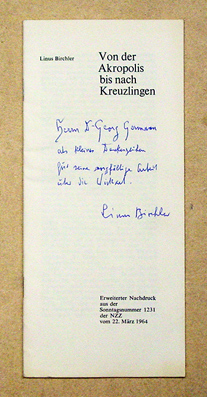 Linus Birchler
Von der
Akropolis
bis nach
Kreuzlingen
Herrn Dr Georg Germann
als kleines Dankeszeichen
für seine sorgfältige Arbeit
über die
Linus Birchler
Erweiterter Nachdruck
aus der
Sonntagsnummer 1231
der NZZ
vom 22. März 1964